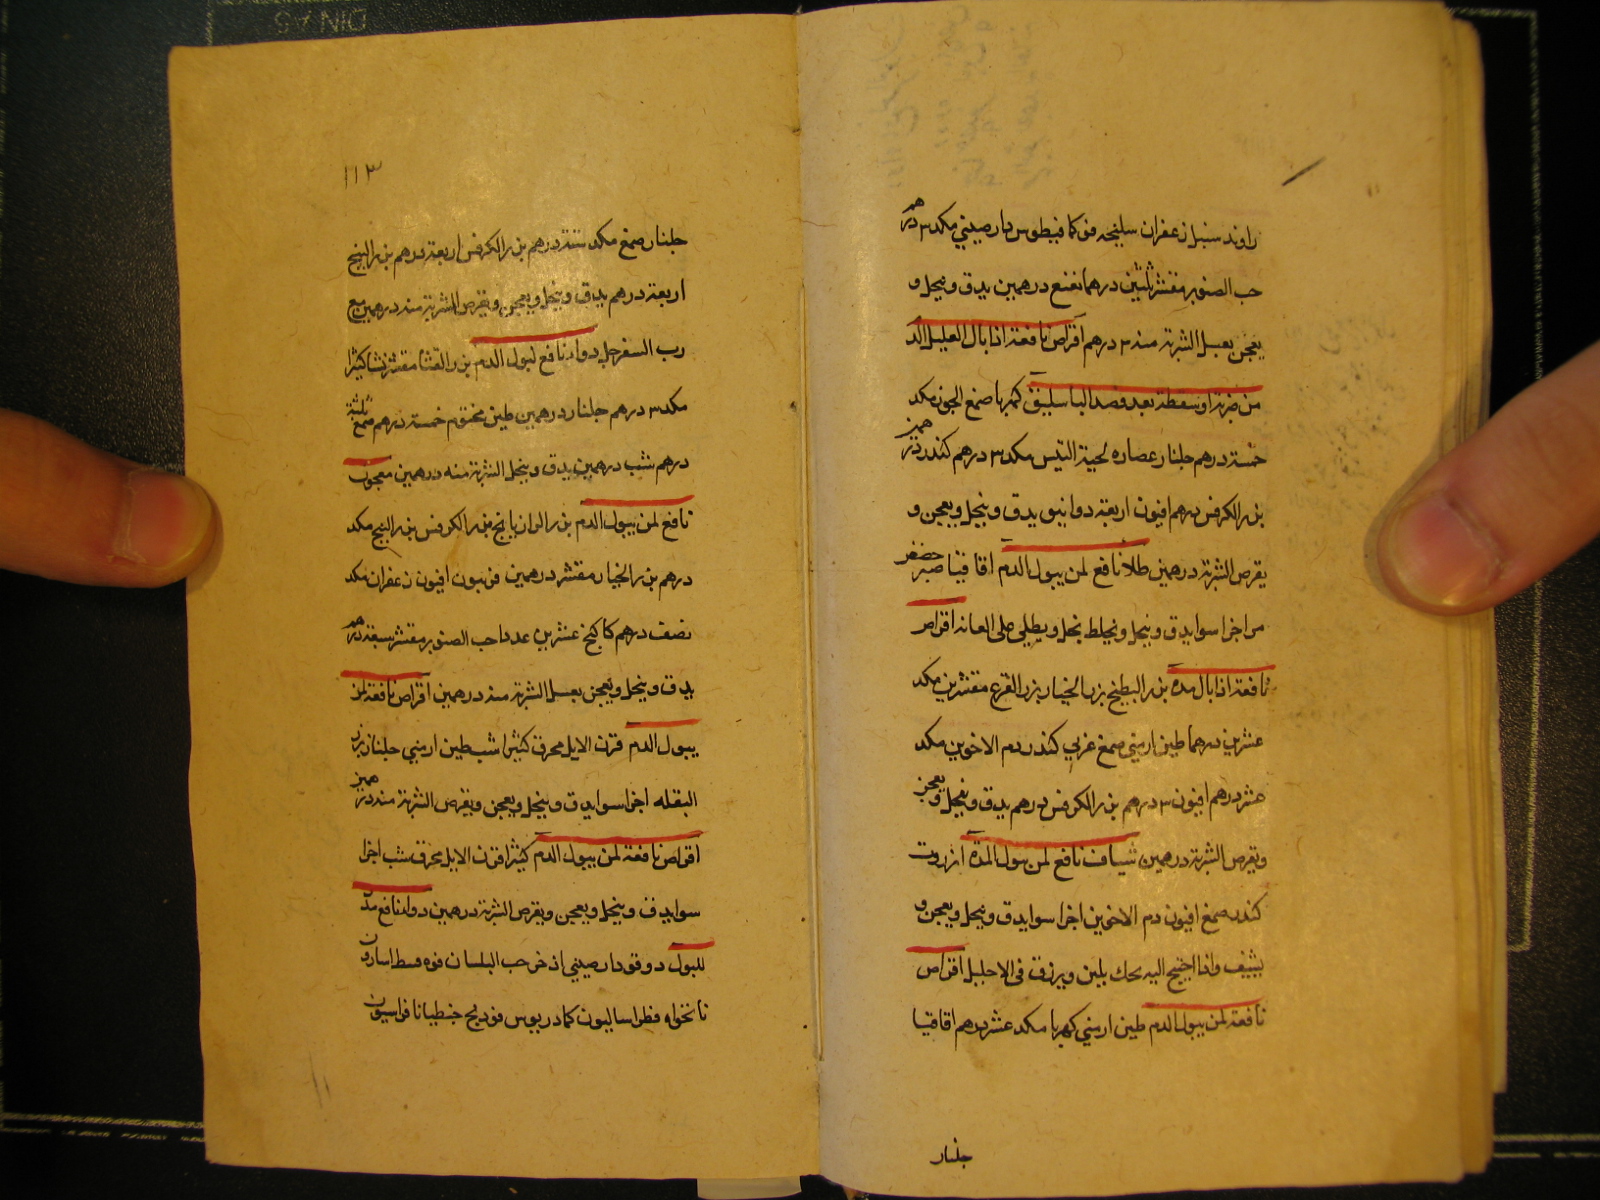 راوند سنبل زعفران سليخه فو كمافيطوس دارصيني مكد ٣ درهم
حب الصنوبر مقشر ثلثين درهما نعنع درهمين يدق وينخل و
يعجن بعسل الشربة منه ٣ درهم اقراص نافعة اذا بال العليل الد
من ضربة او سقطة بعد فصد الباسليق كهربا صمغ الجوز مكد
خمسة درهم جلنار عصاره لحية التيس مكد ٣ درهم كندر درهمين
بزر الكرفس درهم افيون اربعة دوانيق يدق وينخل ويعجن و
يقرص الشربة درهمين طلا نافع لمن يبول الدم اقاقيا صبر حضض
مر اجزا سوا يدق وينخل ويخلط بخل ويطلى على العانه اقراص
نافعة اذا بال مدة بزر البطيخ بزر الخيار بزر القرع مقشرين مكد
عشرين درهما طين ارمني صمغ عربي كندر دم الاخوين مكد
عشر درهم افيون ٣ درهم بزر الكرفس درهم يدق وينخل ويعجن
ويقرص الشربة درهمين شياف نافع لمن يبول المدة انزروت
كندر صمغ افيون دم الاخوين اجزا سوا يدق وينخل ويعجن و
يشيف واذا احتيج اليه يحك بلبن ويزرق في الاحليل اقراص
نافعة لمن يبول الدم طين ارمني كهربا مكد عشر درهم اقاقيا
جلنار
١١٣
جلنار صمغ مكد ستة درهم بزر الكرفس اربعة درهم بزر البنج
اربعة درهم يدق وينخل ويعجن ويقرص الشربة منه درهمين مع
رب السفرجل دواء نافع لبول الدم بزر القثا مقشر نشا كثيرا
مكد ٣ درهم جلنار درهمين طين مختوم خمسة درهم صمغ ثلثة
درهم شب درهمين يدق وينخل الشربة منه درهمين معجون
نافع لمن يبول الدم بزر الرازيانج بزر الكرفس بزر البنج مكد
درهم بزر الخيار مقشر درهمين افيون زعفران مكد
نصف درهم كاكنج عشرين عددا حب الصنوبر مقشر سبعة درهم
يدق وينخل ويعجن بعسل الشربة منه درهمين اقراص نافعة لمن
يبول الدم قرن الايل محرق كثيرا شب طين ارمني جلنار بزر
البقله اجزا سوا يدق وينخل ويعجن ويقرص الشربة منه درهمين
اقراص نافعة لمن يبول الدم كثيرا قرن الايل محرق شب اجزا
سوا يدق وينخل ويعجن ويقرص الشربة درهمين دواء نافع مدر
للبول دوقو دارصيني اذخر حب البلسان فوه قسط اسارون
نانخواه فطراساليون كمادريوس فوديج جنطيانا فراسيون